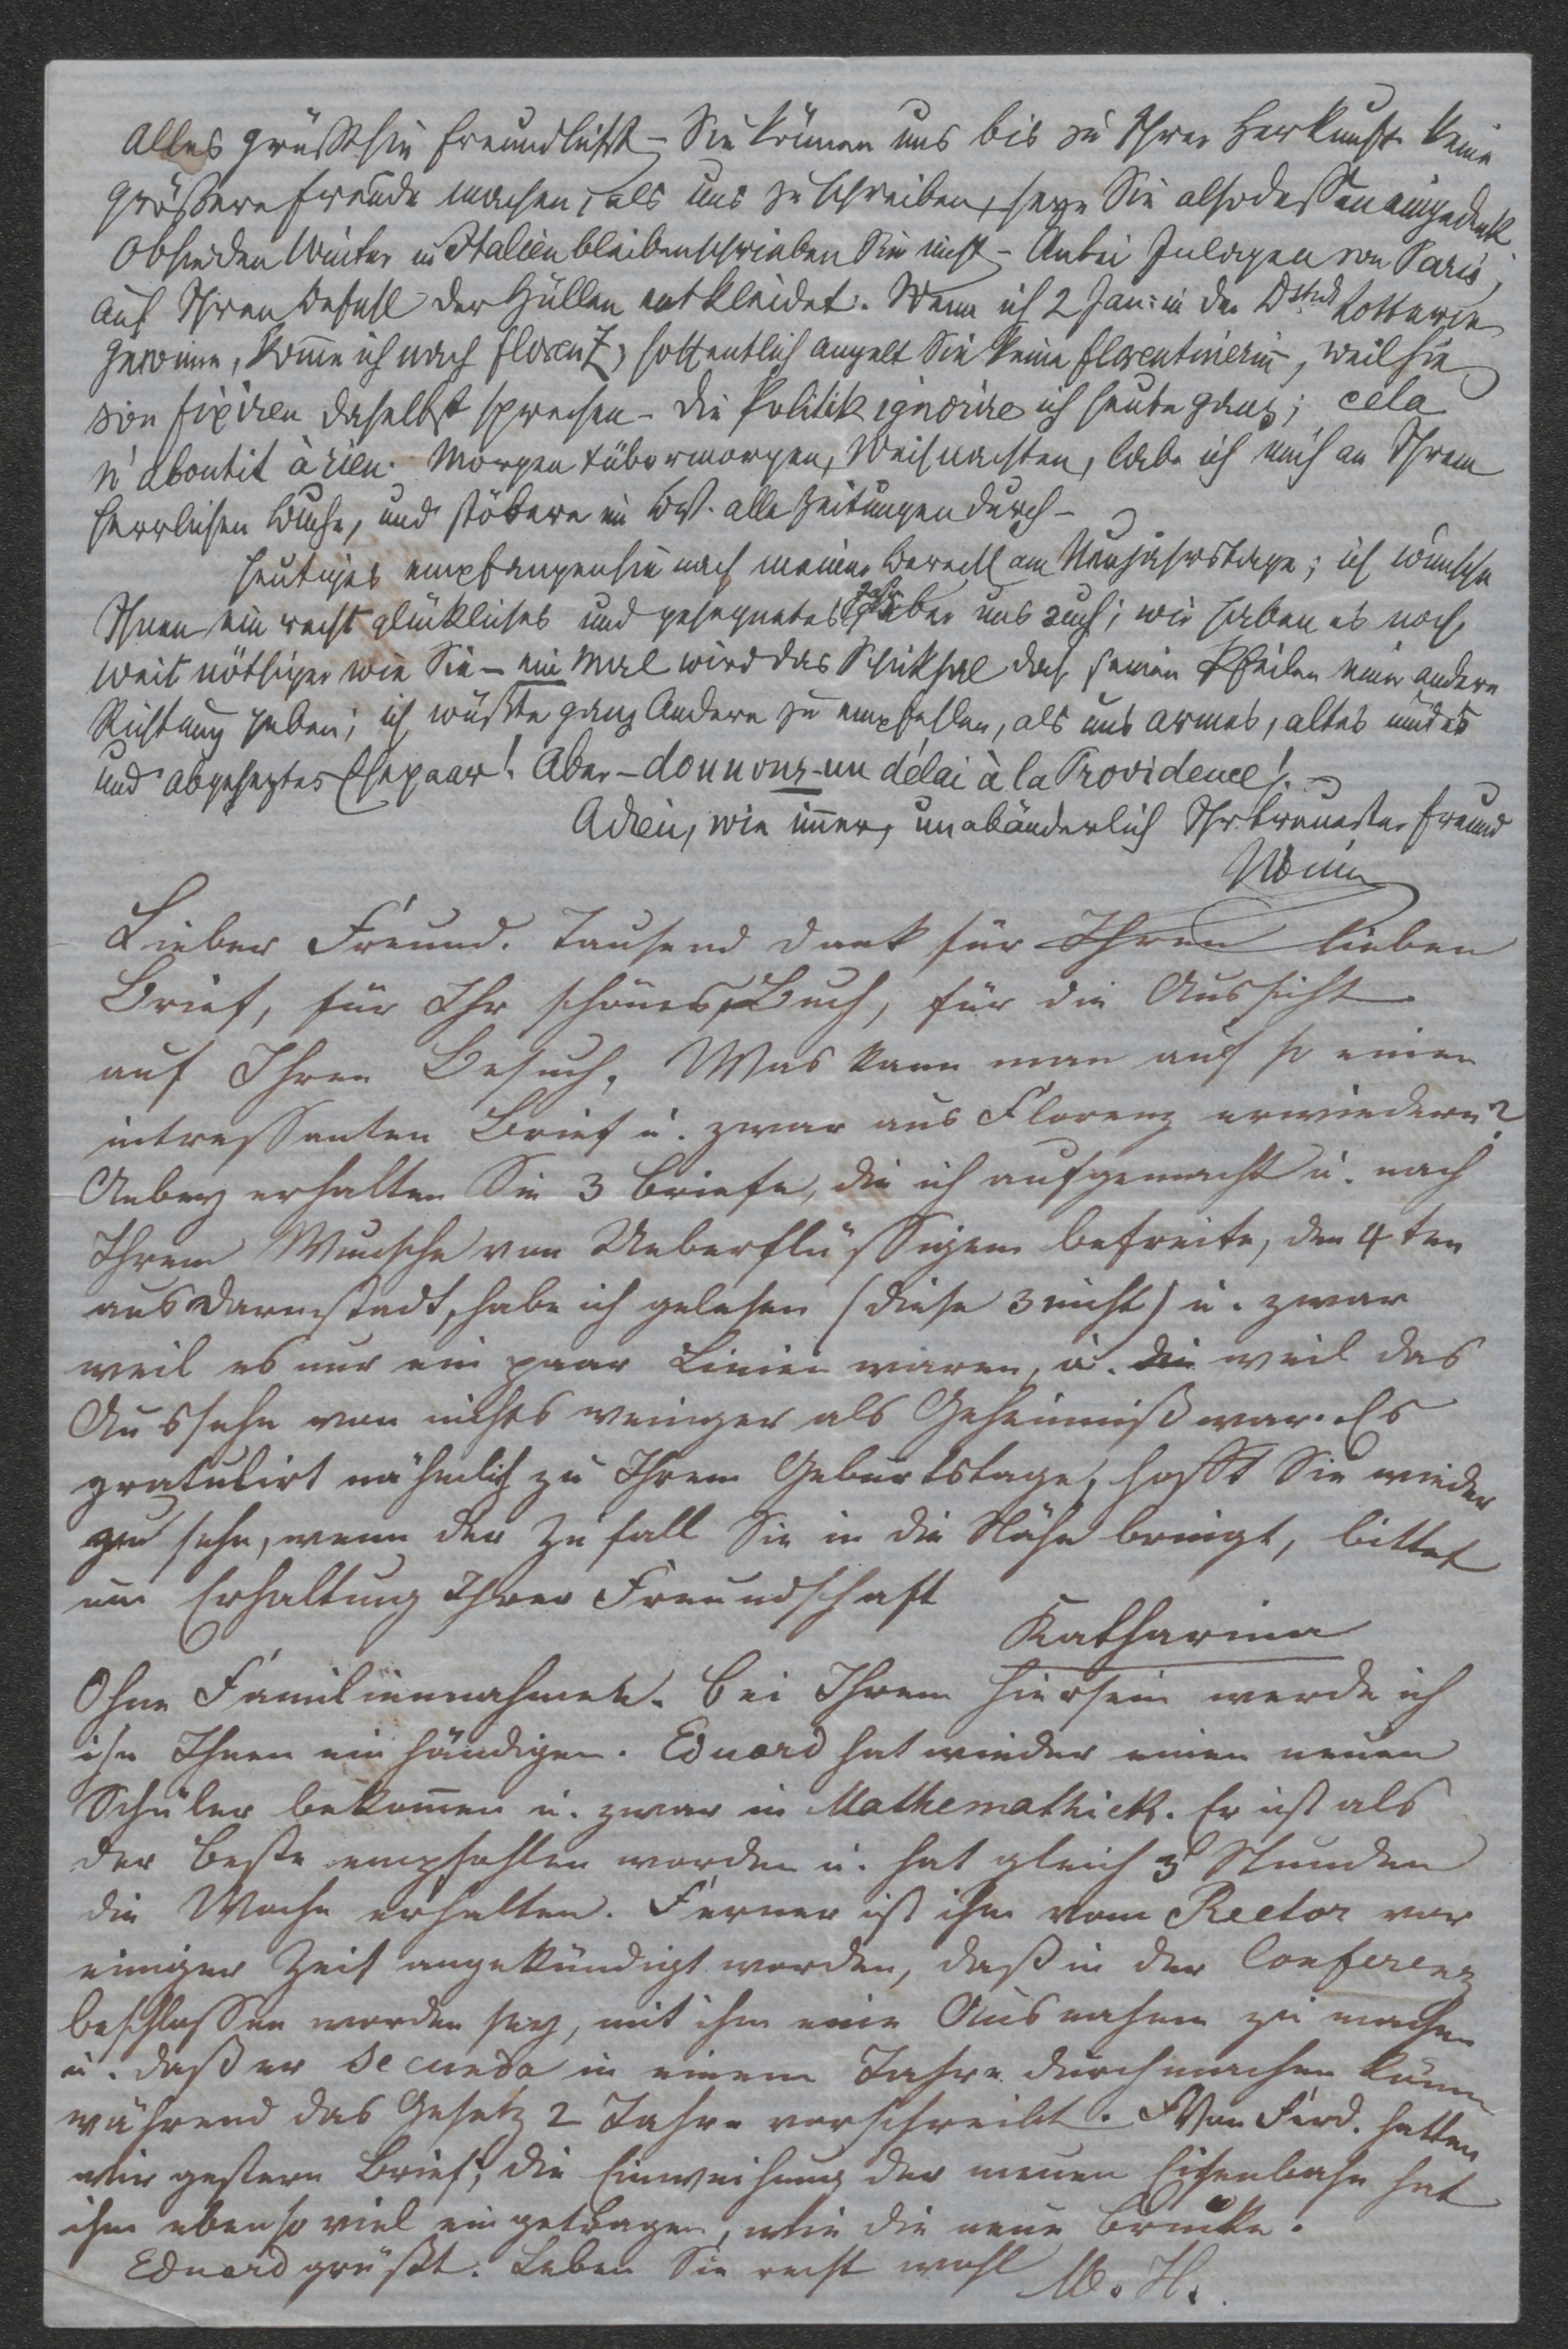 Alles grüßt Sie freundlichst – Sie können uns bis zu Ihrer Herkunft keine
größere Freude machen, als uns zu schreiben, seye Sie also dessen eingedenk
Ob Sie den Winter in Italien bleiben schrieben Sie nicht – Anbei Inlagen von Paris,
auf Ihren Befehl der Hüllen entkleidet. Wenn ich 2 Jan: in der Lotterie
gewinne, kom̄e ich nach Florenz, hoffentlich angelt Sie keine Florentinerin̄, weil Sie
von fixiren daselbst sprechen – Die Politik ignorire ich heute ganz; cela
n'aboutit à rien. Morgen & übermorgen, Weihnachten, labe ich mich an Ihrem
herrlichen Buche, und stöbere im alle Zeitungen durch –
Heutiges empfangen Sie nach meiner am Neujahrstage; ich wünsche
Ihnen ein recht glückliches und gesegnetes Jahr aber uns auch; wir haben es noch
weit nöthiger wie Sie – ein Mal wird das Schiksal doch seinen Pfeilen eine andere
Richtung geben; ich wüßte ganz Andere zu empfehlen, als uns armes, altes müdes
und abgeheztes Ehepaar! Aber – donnons-un délai à la Providence!
Adieu, wie im̄er, unabänderlich Ihr treuester Freund
Lieber Freund. Tausend Dank für Ihren lieben
Brief, für Ihr schönes Buch, für die Aussicht
auf Ihren Besuch. Was kann man auf so einen
intressanten Brief u. zwar aus Florenz erwiedern?
erhalten Sie 3 Briefe, die ich aufgemacht u. nach
Ihrem Wunsche von Ueberflüssigem befreite, den 4ten
aus Darmstadt, habe ich gelesen (diese 3 nicht) u. zwar
weil es nur ein paar Linien waren, u. die weil das
Aussehn von nichts weniger als Geheimniß war. Es
gratulirt nähmlich zu Ihrem Geburtstage, hofft Sie wieder
zu sehn, wenn der Zufall Sie in die Nähe bringt, bittet
um Erhaltung Ihrer Freundschaft
Katharina
Ohne Familiennahmen. Bei Ihrem Hiersein werde ich
ihn Ihnen einhändigen. Eduard hat wieder einen neuen
Schüler bekom̄en u. zwar in Mathemathick. Er ist als
der beste empfohlen worden u. hat gleich 3 Stunden
die Woche erhalten. Ferner ist ihm vom Rector vor
einiger Zeit angekündigt worden, daß in der Conferenz
beschlossen worden sey, mit ihm eine Ausnahme zu machen
u. daß er Secunda in einem Jahre durchmachen könne
während das Gesetz 2 Jahre vorschreibt. Von Ferd. hatten
wir gestern Brief, die Einweihung der neuen Eisenbahn hat
ihm ebenso viel eingetragen, wie die neue Brücke.
Eduard grüßt. Leben Sie recht wohl